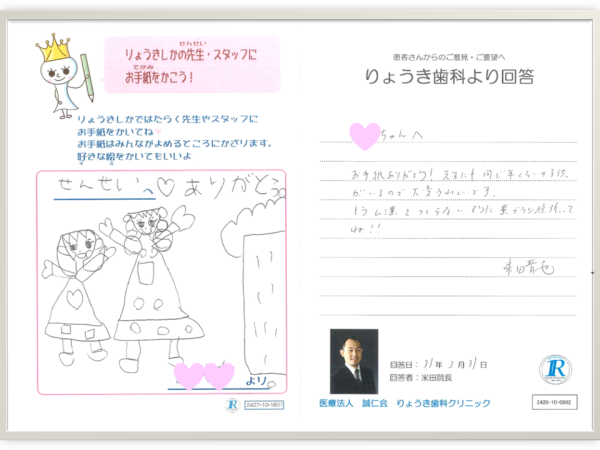 せんせい
りょうきしかの先生・スタッフに
てがみ
お手紙をかこう！
りょうきしかではたらく先生やスタッフに
お手紙をかいてね
お手紙はみんながよめるところにかざります。
好きな絵をかいてもいいよ
せんせいへ♡ありがとう
より
2427-10-1801
患者さんからのご意見・ご要望へ
りょうき歯科より回答
ちゃんへ
お手紙ありがとう! 先生にも同じ年くらいの子供
がいるので大変うれしいです。
をつくらない様に歯ブラシ頑張って
ね!!
米田
回答日：31年3月31日
回答者：米田院長
医療法人 誠仁会 りょうき歯科クリニック
2420-10-0902